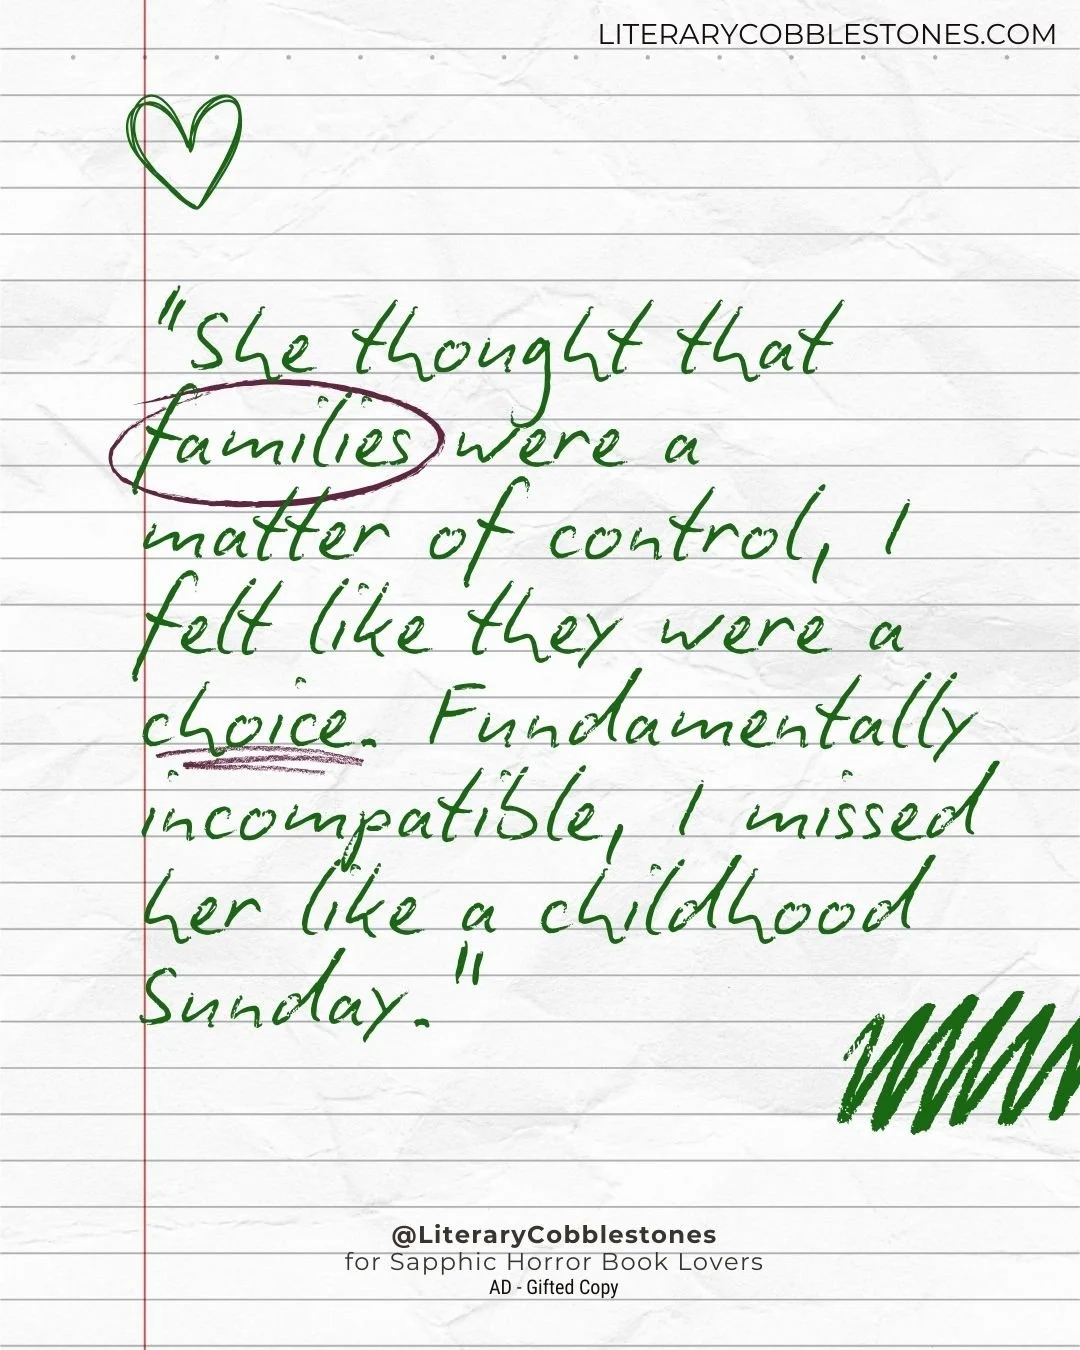 LITERARYCOBBLESTONES.COM
"She thought that
families were a
matter of control, I
felt like they were a
choice. Fundamentally
incompatible, I missed
her like a childhood
Sunday."
@LiteraryCobblestones
for Sapphic Horror Book Lovers
AD - Gifted Copy